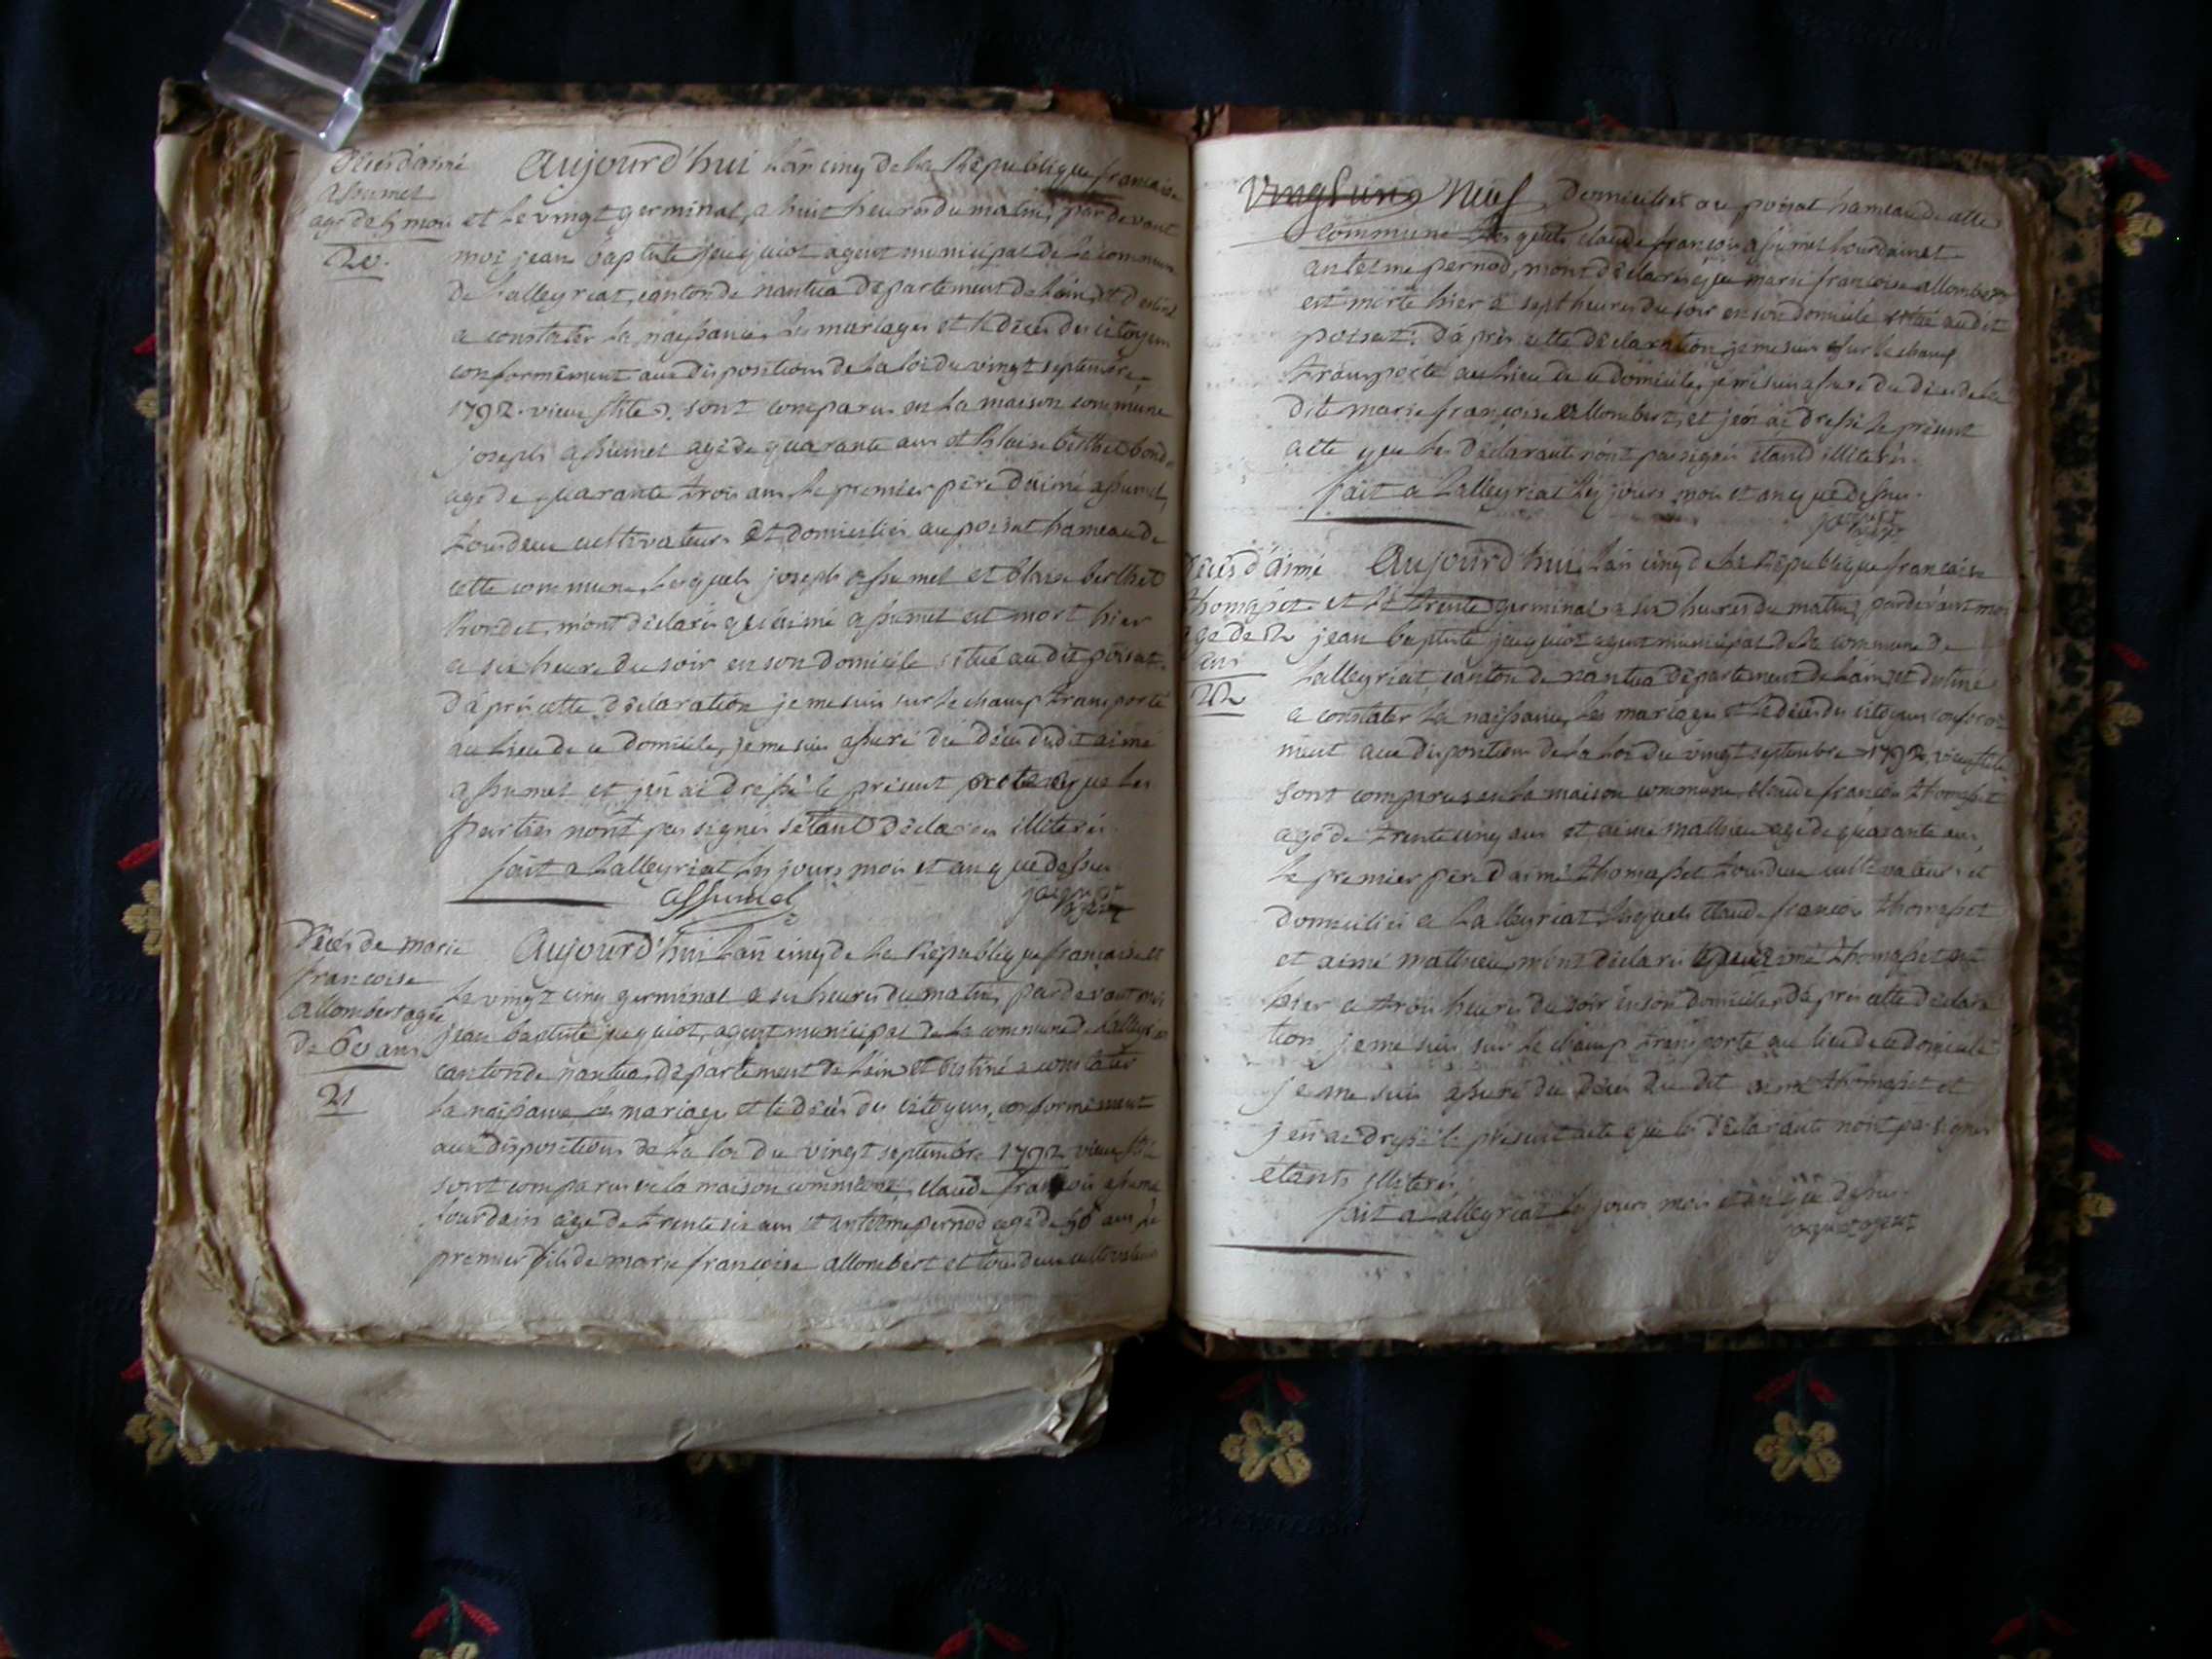 Décès d'aimé
assumel
agé de 5 mois
20.
Aujourd'hui L'an cinq de la Republique francaise
et le vingt germinal, a huit heures du matin, par devant
moi jean baptiste jacquiot agent municipal de la commune
de Lalleyriat, canton de nantua departement de L'ain, et destiné
a constater la naissance, les mariages et le décès des citoyens
conformément aux dispositions de la loi du vingt septembre
1792. vieux stile, sont comparus en la maison commune
joseph assumel agé de quarante ans et blaise berthet bondet
agé de quarante trois ans le premier père d'aimé assumel,
tous deux cultivateurs et domiciliés au poisat hameau de
cette commune, Lesquels joseph assumel et blaise berthet
bondet, m'ont déclaré qu'aimé assumel est mort hier
a six heure du soir en son domicile situé au dit poisat.
D'après cette déclaration je me suis sur le champ transporté
au lieu de ce domicile, je me suis assuré du décès du dit aimé
assumel et j'en ai dressé le présent acte que les
parties n'ont pas signés s'étant déclarés illiterés.
fait a Lalleyriat les jours mois et an que dessus
assumel jacquiot agent
Décès de marie
francoise
allombert agée
de 60 ans
21
Aujourd'hui L'an cinq de la Republique francaise et
le vingt cinq germinal a six heures du matin, par devant moi
jean baptiste jacquiot, agent municipal de la commune de Lalleyriat
canton de nantua, departement de L'ain et destiné a constater
la naissance, les mariages et le décès des citoyens, conformément
aux dispositions de la loi du vingt septembre 1792 vieux stile
sont comparus en la maison commune, claude francois assumel
bourdain agé de trente six ans et antelme pernod agé de 50 ans le
premier fils de marie francoise allombert et tous deux cultivateurs
Vingt une Neuf Domiciliés au poisat hameau de cette
commune Lesquels claude francois assumel bourdain et
antelme pernod, m'ont déclaré que marie francoise allombert
est morte hier a sept heures du soir en son domicile situé au dit
poisat. D'après cette déclaration, je me suis sur le champ
transporté au lieu de ce domicile, je me suis assuré du décès de la
dite marie francoise allombert, et j'en ai dressé le présent
acte que les déclarants n'ont pas signés étants illiterés.
fait a Lalleyriat les jours mois et an que dessus.
jacquiot agent
Décès d'aimé
thomasset
agé de 2
ans
22
Aujourd'hui, L'an cinq de la République francaise
et le trente germinal a six heures du matin, par devant moi
jean baptiste jacquiot agent municipal de la commune de
Lalleyriat, canton de nantua département de L'ain, et destiné
a constater la naissance, les mariages et le décès des citoyens conformé
ment aux dispositions de la loi du vingt septembre 1792 vieux stile
sont comparus en la maison commune, claude francois thomasset
agé de trente cinq ans et aimé mathieu agé de quarante ans,
le premier père d'aimé thomasset tous deux cultivateurs et
domiciliés a Lalleyriat, lesquels claude francois thomasset
et aimé mathieu, m'ont déclaré qu'aimé thomasset est
hier a trois heures du soir en son domicile, d'après cette déclara
tion je me suis sur le champ transporté au lieu de ce domicile
je me suis assuré du décès du dit aimé thomasset et
j'en ai dressé le présent acte que les déclarants n'ont pas signés
étants illiterés.
fait a Lalleyriat les jours mois et an que dessus.
jacquiot agent